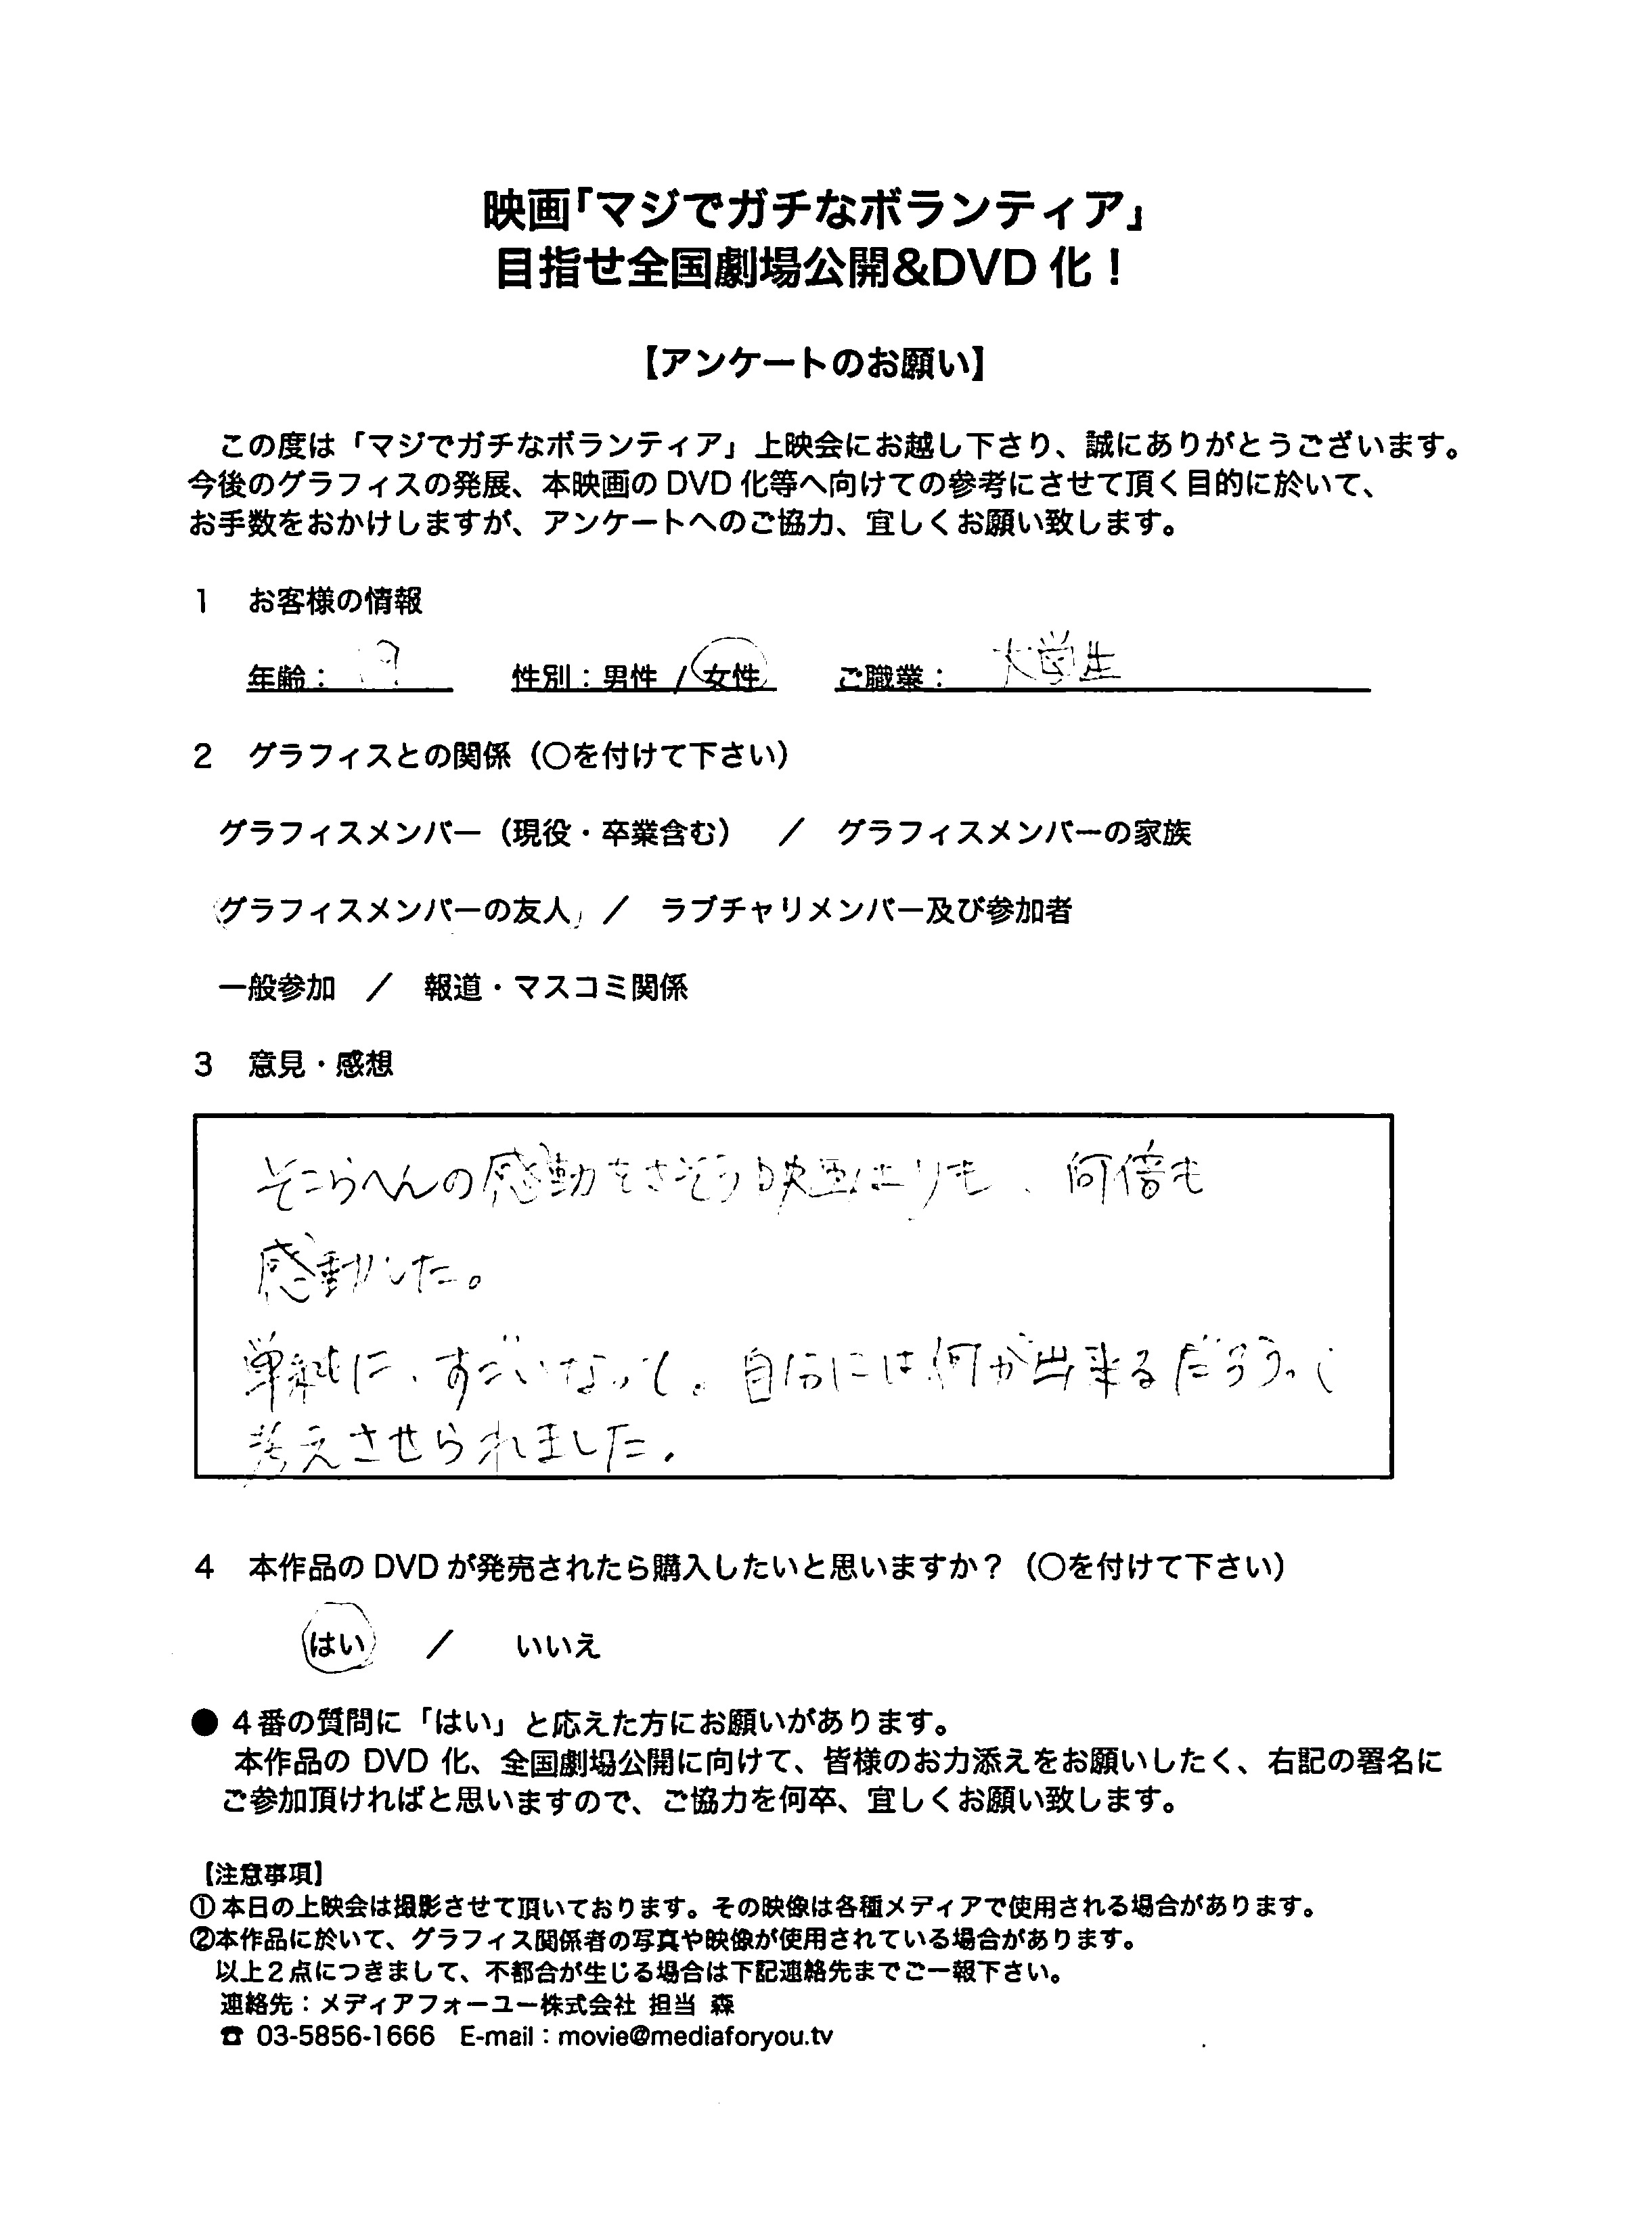 映画「マジでガチなボランティア」
目指せ全国劇場公開&DVD 化！
【アンケートのお願い】
この度は「マジでガチなボランティア」上映会にお越し下さり、誠にありがとうございます。
今後のグラフィスの発展、本映画の DVD 化等へ向けての参考にさせて頂く目的に於いて、
お手数をおかけしますが、アンケートへのご協力、宜しくお願い致します。
1 お客様の情報
年齢： 性別：男性 / 女性 ご職業： 大学生
2 グラフィスとの関係（○を付けて下さい）
グラフィスメンバー（現役・卒業含む） ／ グラフィスメンバーの家族
グラフィスメンバーの友人 ／ ラブチャリメンバー及び参加者
一般参加 ／ 報道・マスコミ関係
3 意見・感想
そこらへんの感動をさそう映画よりも、何倍も
感動した。
単純に、すごいなって。自分には何が出来るだろうって
考えさせられました。
4 本作品の DVD が発売されたら購入したいと思いますか？（○を付けて下さい）
はい ／ いいえ
● 4番の質問に「はい」と応えた方にお願いがあります。
本作品の DVD 化、全国劇場公開に向けて、皆様のお力添えをお願いしたく、右記の署名に
ご参加頂ければと思いますので、ご協力を何卒、宜しくお願い致します。
【注意事項】
①本日の上映会は撮影させて頂いております。その映像は各種メディアで使用される場合があります。
②本作品に於いて、グラフィス関係者の写真や映像が使用されている場合があります。
以上2点につきまして、不都合が生じる場合は下記連絡先までご一報下さい。
連絡先：メディアフォーユー株式会社 担当 森
☎ 03-5856-1666 E-mail：movie@mediaforyou.tv